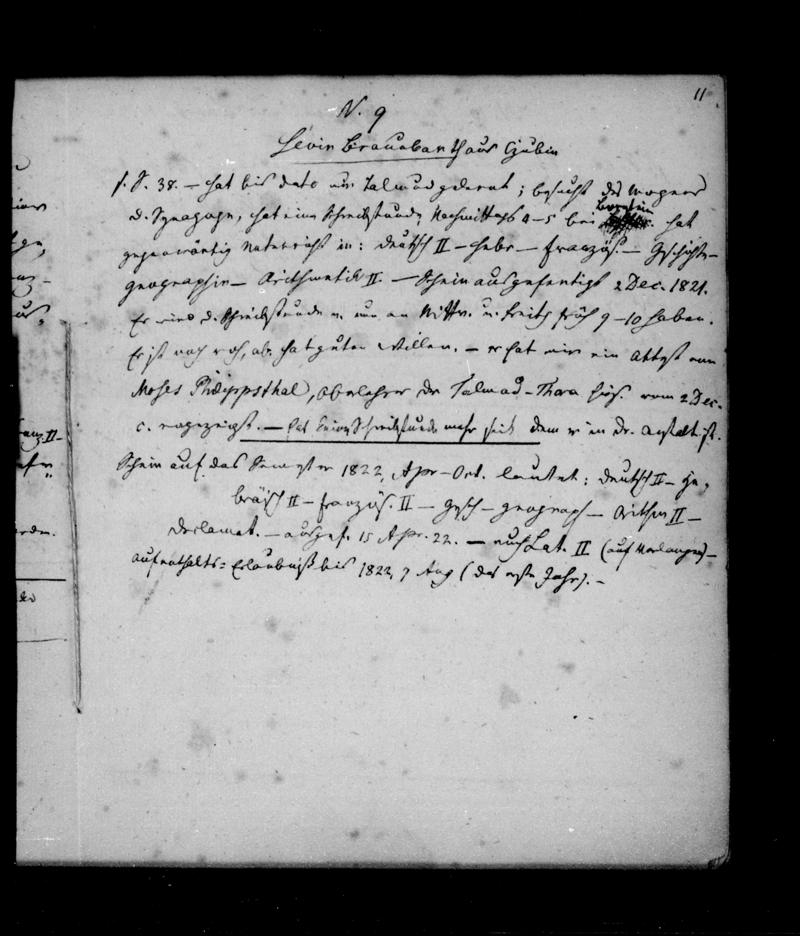 11
N. 9
Levin Braunbarth aus Czubin
s. S. 38. – hat bis dato nur Talmud gelernt; besucht des Morgens
d. Synagoge, hat eine Schreibstunde Nachmittags 4–5 bei hat
gegenwärtig Unterricht in: deutsch II – hebr. – französ. – Geschichte –
geographie – Arithmetik II. – Schein ausgefertigt 2 Dec. 1821.
Er wird d. Schreibstunde v. nun an Mittw. u. Freitg früh 9–10 haben.
Er ist noch roh, ab. hat guten Willen. – er hat mir ein Attest von
Moses Philippsthal, Oberlehrer der Talmud-Thora hies. vom 2 Dec.
c. vorgezeigt. – hat keine Schreibstunde mehr seit dem er in dr. Anstalt ist.
Schein auf das Semester 1822, Apr–Oct. lautet: deutsch II – He-
bräisch II – französ. II – Gesch – geograph – Arithm II –
Declamat. – ausgef. 15 Apr. 22. – auch Lat. II (auf Verlangen) –
Aufenthalts-Erlaubniß bis 1822, 7 Aug (das erste Jahr). –